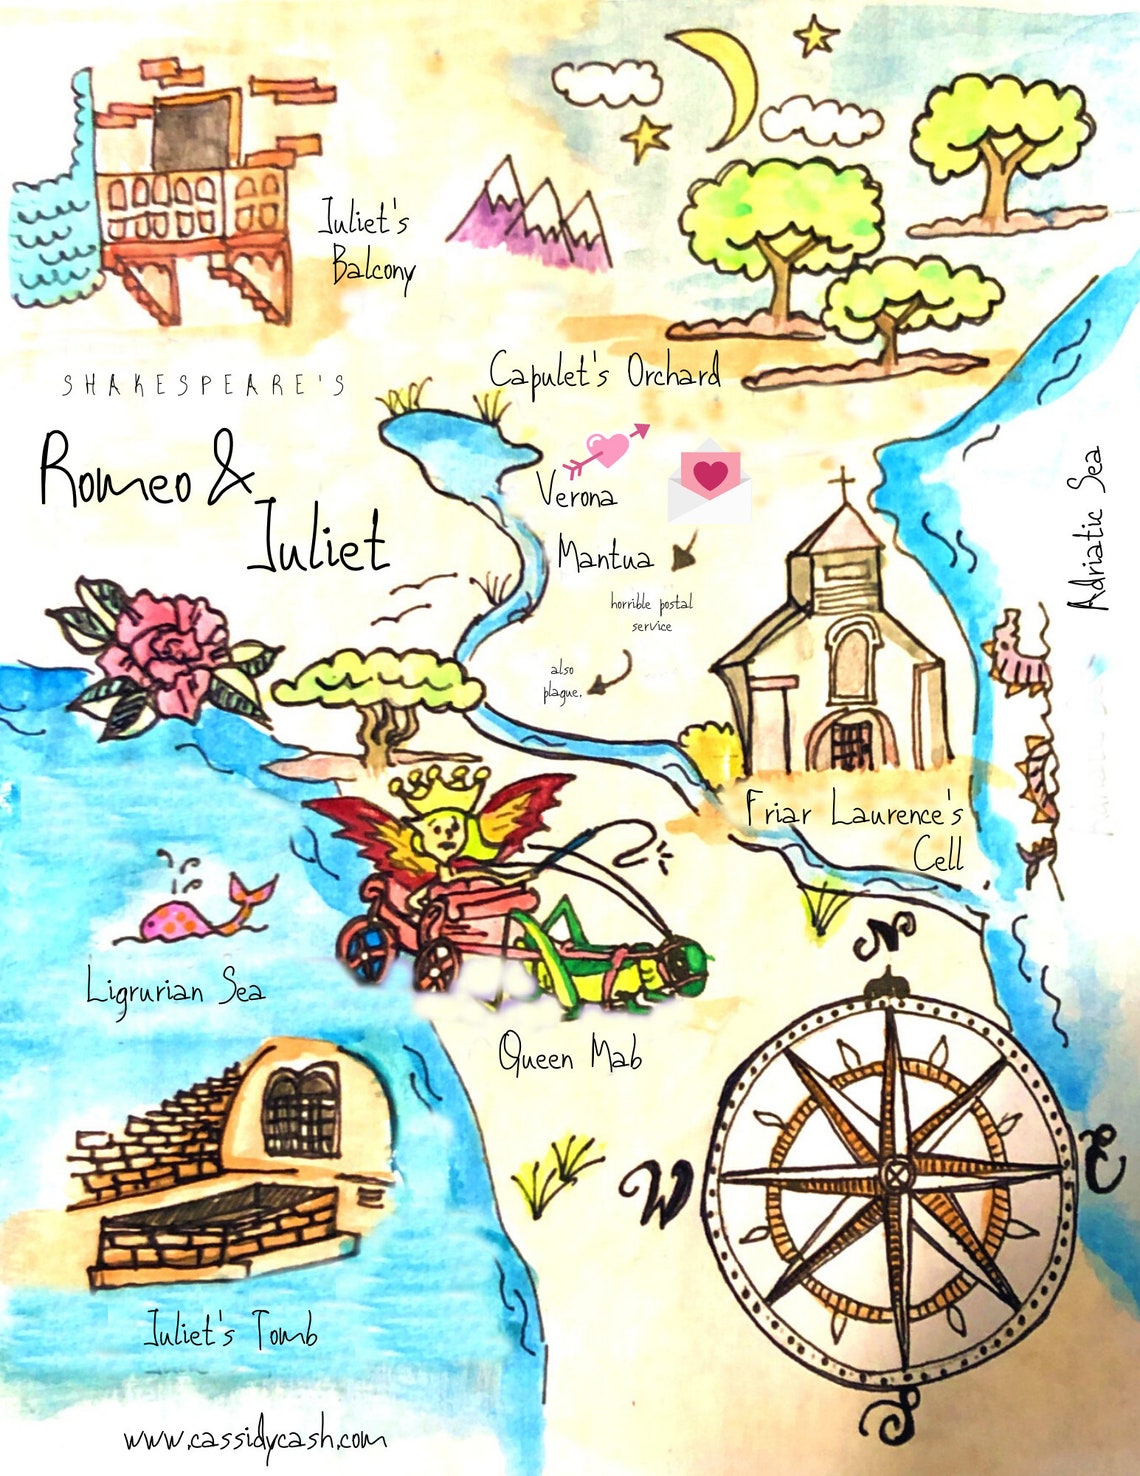 Juliet's
Balcony
SHAKESPEARE'S
Capulet's Orchard
Romeo &
Juliet
Verona
Mantua
horrible postal
service
also
plague.
Adriatic Sea
Friar Laurence's
Cell
Ligrurian Sea
Queen Mab
N
W
E
S
Juliet's Tomb
www.cassidycash.com